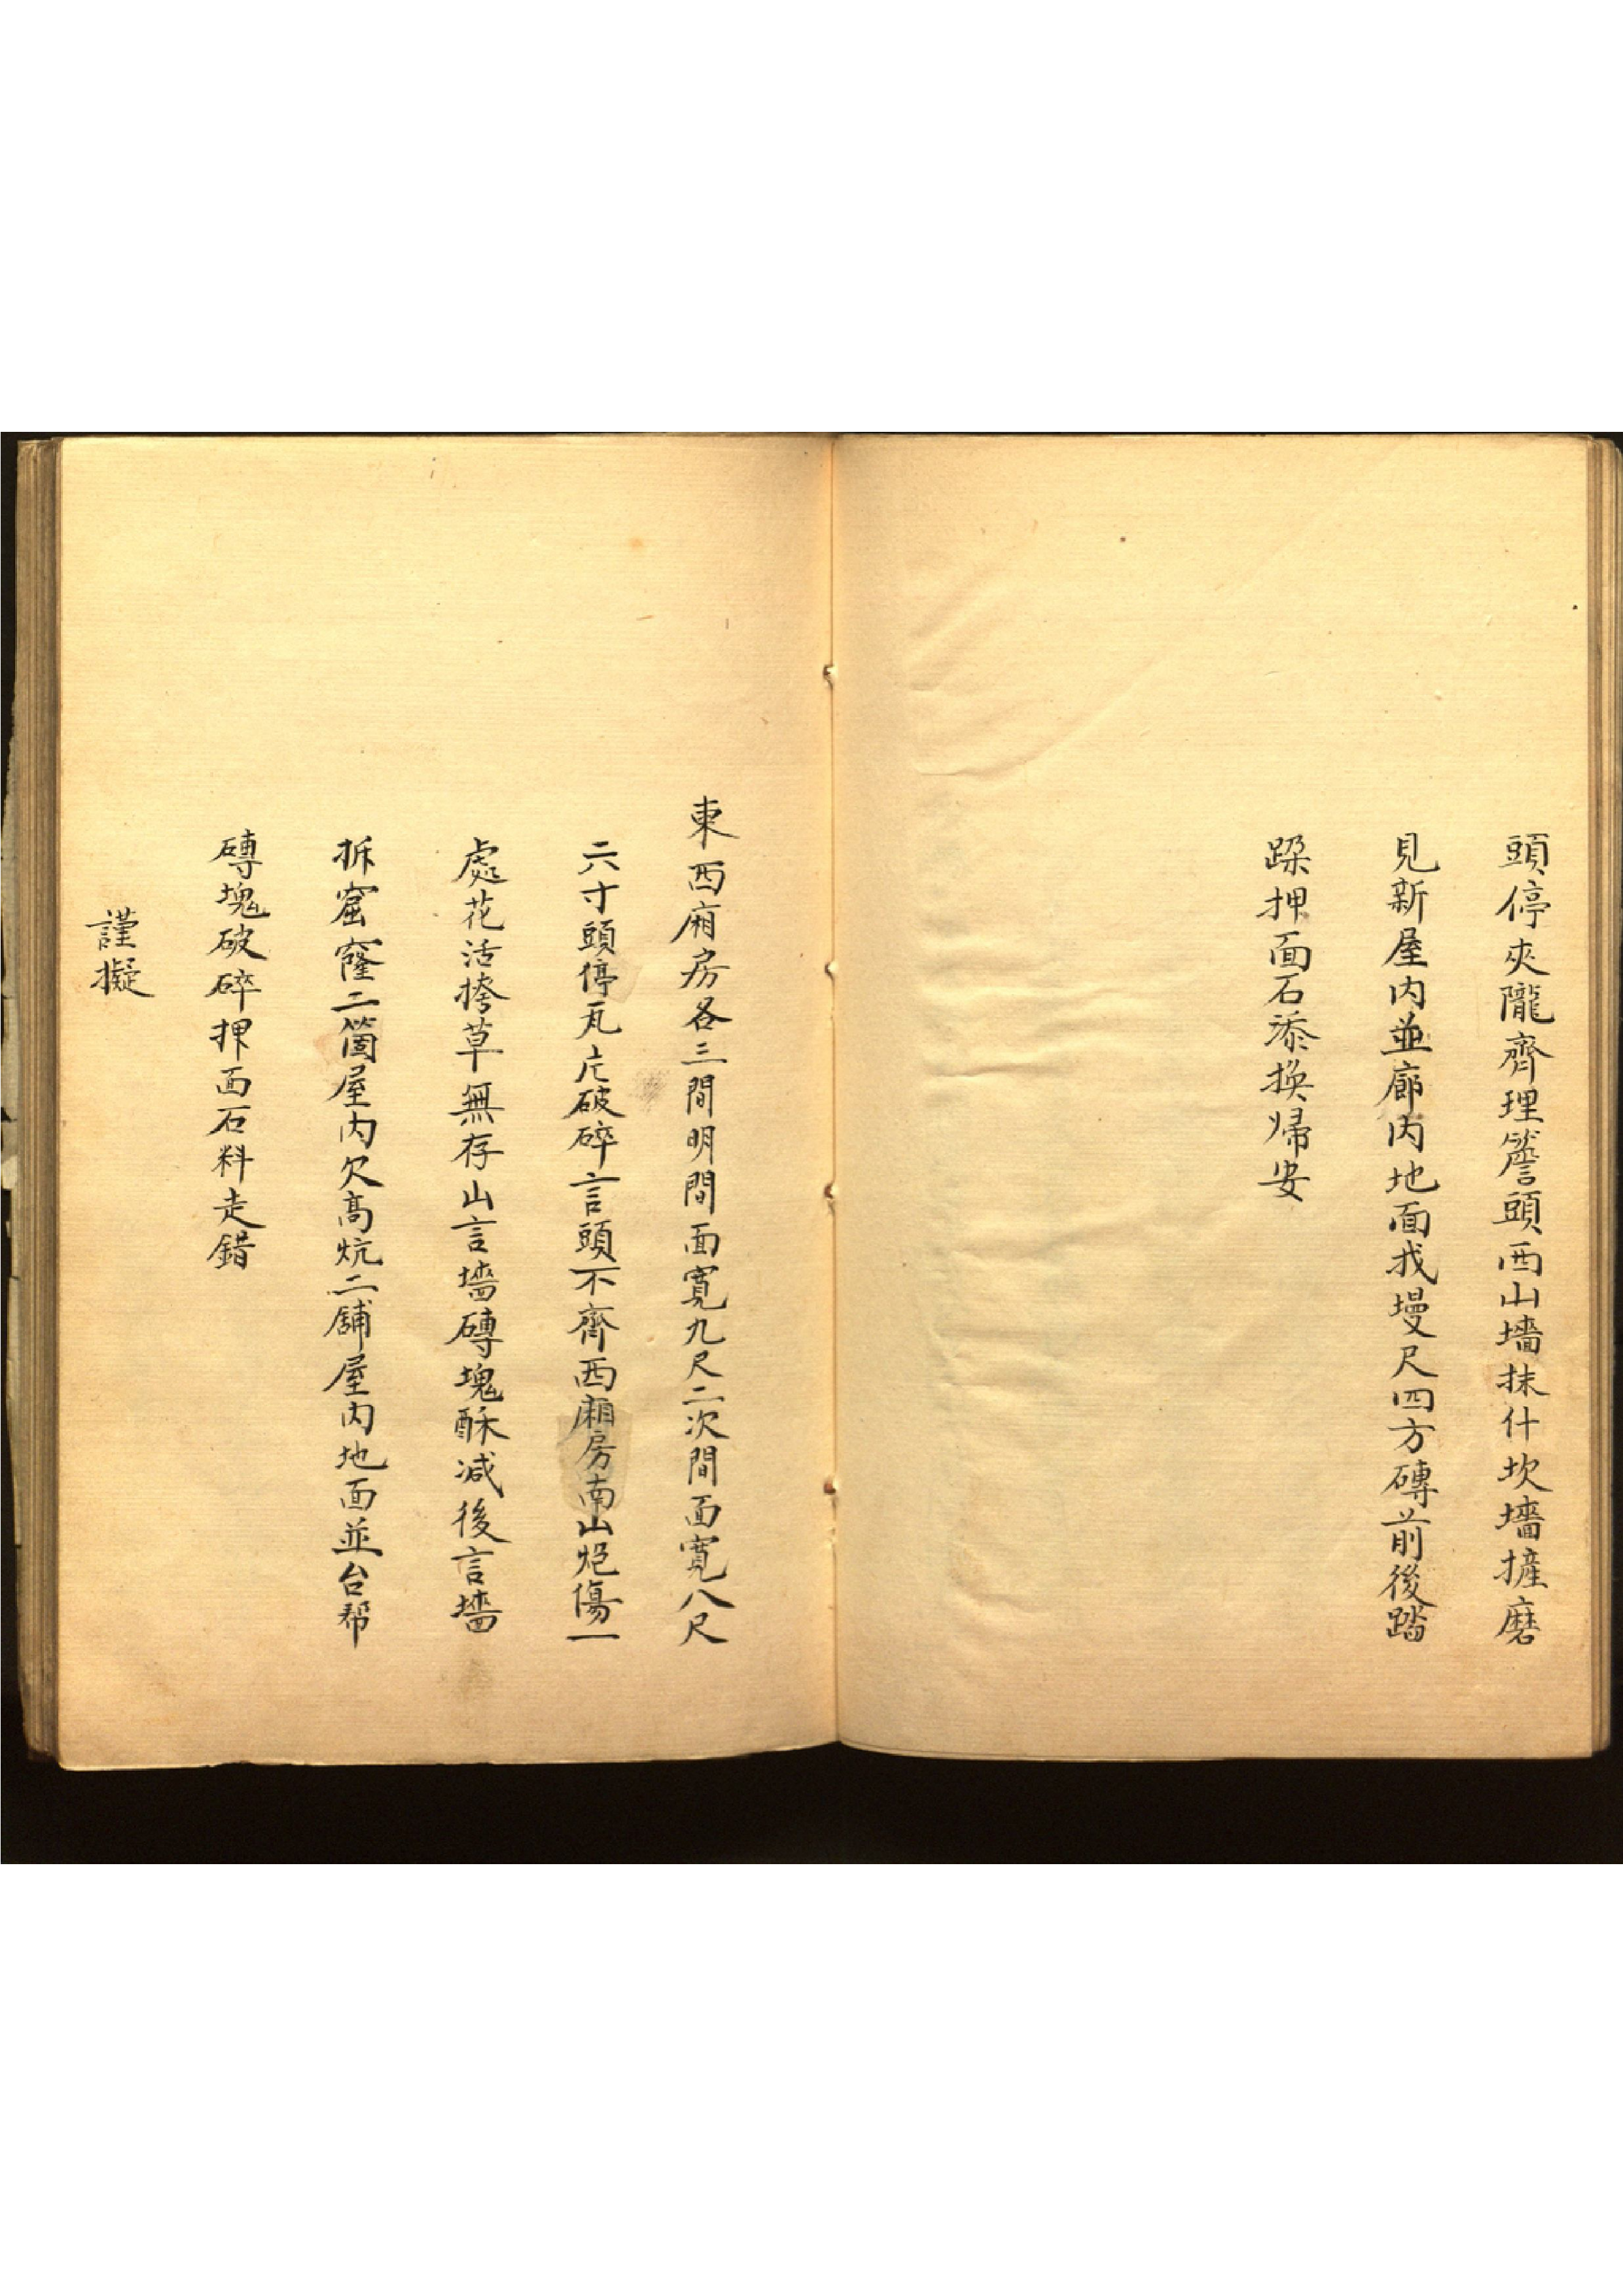 頭停夾隴齊理簷頭西山墻抹什坎墻摌磨
見新屋内並廊内地面找墁尺四方磚前後踏
跺押面石添換歸安
東西廂房各三間明間面寬九尺二次間面寬八尺
六寸頭停瓦片破碎言頭不齊西廂房南山炮傷一
處花活捲草無存山言墻磚塊酥减後言墻
拆窟窿二箇屋内欠高炕二舖屋内地面並台帮
磚塊破碎押面石料走錯
謹擬